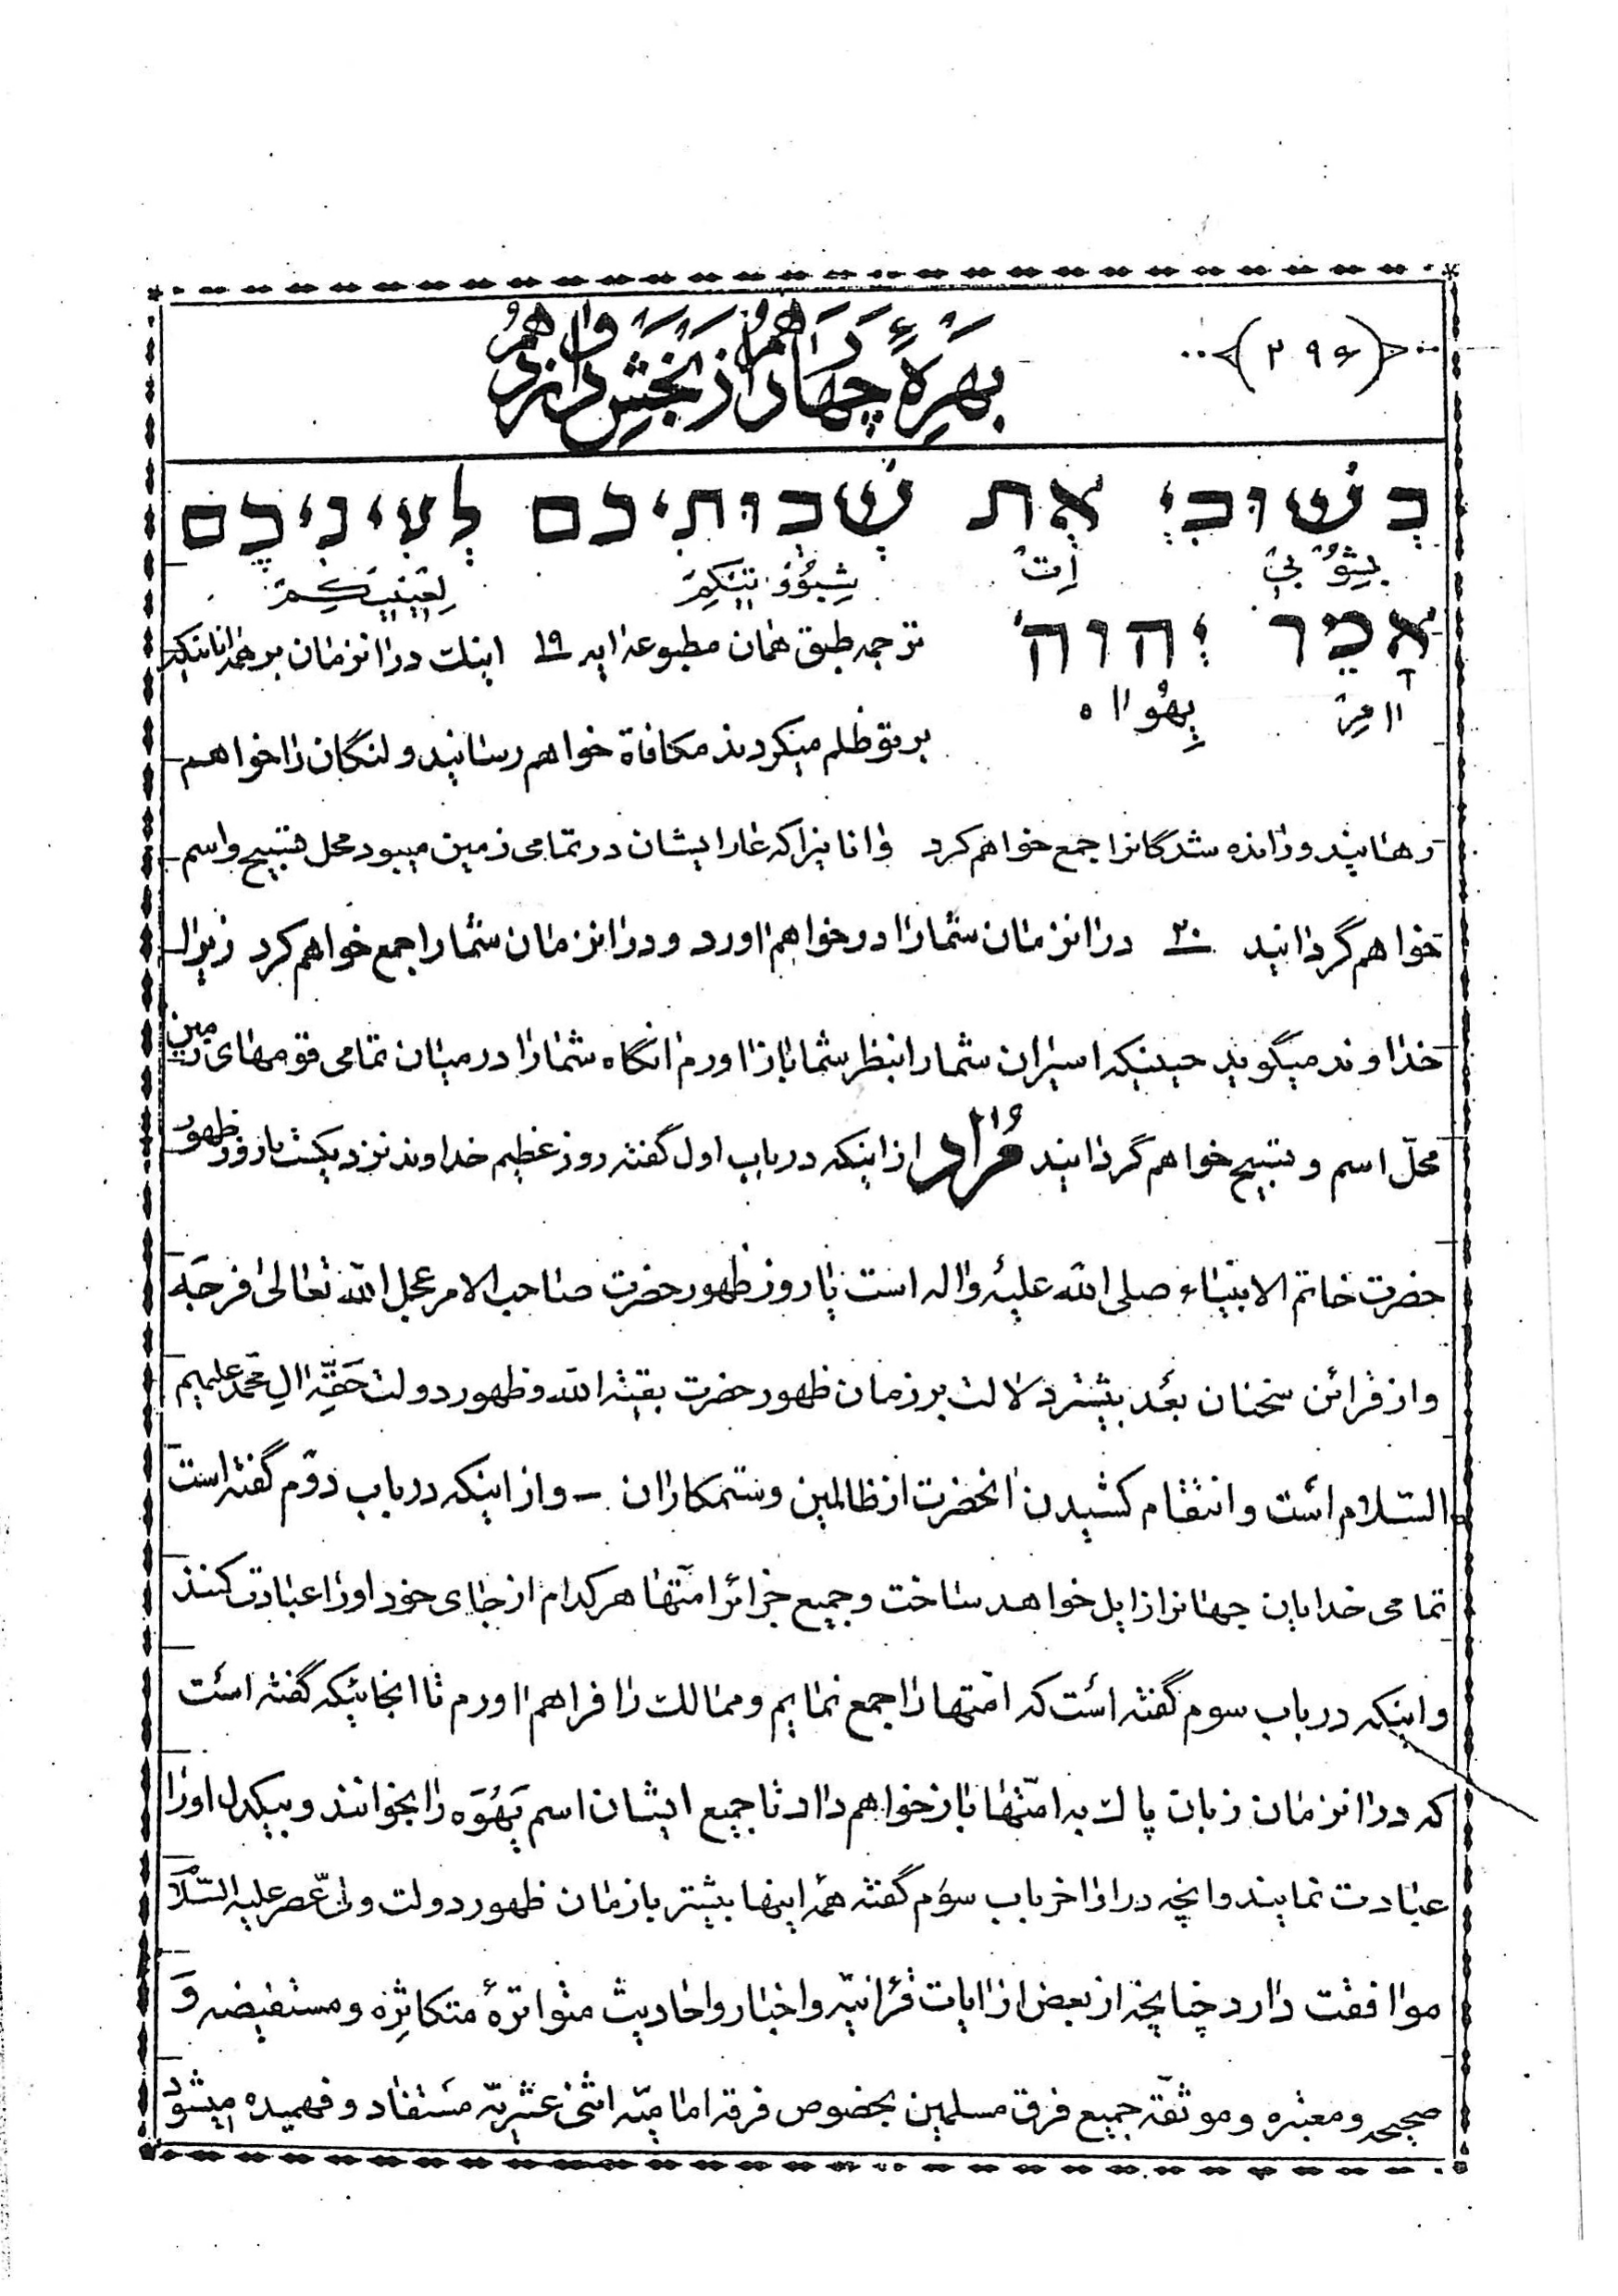 (۳۹۶)
بهرهٔ چهاردهم از بخش دوازدهم
בְּשׁוּבִי אֶת שְׁבוּתֵיכֶם לְעֵינֵיכֶם
بِشُوُبیٖ اِتْ شِبُوُتیٖکِمْ لِعِیٖنِیٖکِمْ
אָמַר יְהוָה ترجمه طبق همان مطبوعه ایه ۱۹ اینك در انزمان بر همه انانیکه
اامَرْ یِهُوااه بر تو ظلم میکردند مکافاة خواهم رسانید و لنگان را خواهم
رهانید و رانده شدگانرا جمع خواهم کرد و انانیرا که عار ایشان در تمامی زمین میبود محل تسبیح و اسم
خواهم گردانید ۲۰ در انزمان شما را در خواهم اورد و در انزمان شما را جمع خواهم کرد زیرا
خداوند میگوید حینیکه اسیران شما را بنظر شما باز اورم انگاه شما را در میان تمامی قومهای زمین
محلّ اسم و تسبیح خواهم گردانید مُراد از اینکه در باب اول گفته روز عظیم خداوند نزدیکست یا روز ظهور
حضرت خاتم الانبیاء صلی الله علیه واله است یا روز ظهور حضرت صاحب الامر عجل الله تعالی فرجه
و از قرائن سخنان بعد بیشتر دلالت بر زمان ظهور حضرت بقیة الله و ظهور دولت حَقّهٔ الِ محمد علیهم
السّلام است و انتقام کشیدن انحضرت از ظالمین و ستمکاران – و از اینکه در باب دوّم گفته است
تمامی خدایان جهانرا زایل خواهد ساخت و جمیع جزائر امّتها هر کدام از جای خود اورا عبادت کنند
و اینکه در باب سوم گفته است که امّتها را جمع نمایم و ممالك را فراهم اورم تا انجائیکه گفته است
که در انزمان زبان پاك به امّتها باز خواهم داد تا جمیع ایشان اسم یَهُوَه را بخوانند و بیکدل اورا
عبادت نمایند و انچه در اواخر باب سوّم گفته همه اینها بیشتر با زمان ظهور دولت ولیّ عصر علیه السّلام
موافقت دارد چنانچه از بعض از ایات قرانیّه و اخبار و احادیث متواترهٔ متکاثِره و مستفیضه وَ
صحیحه و معتبره و موثّقه جمیع فرق مسلمین بخصوص فرقه امامیّه اثنی عشریّه مستفاد و فهمیده میشود